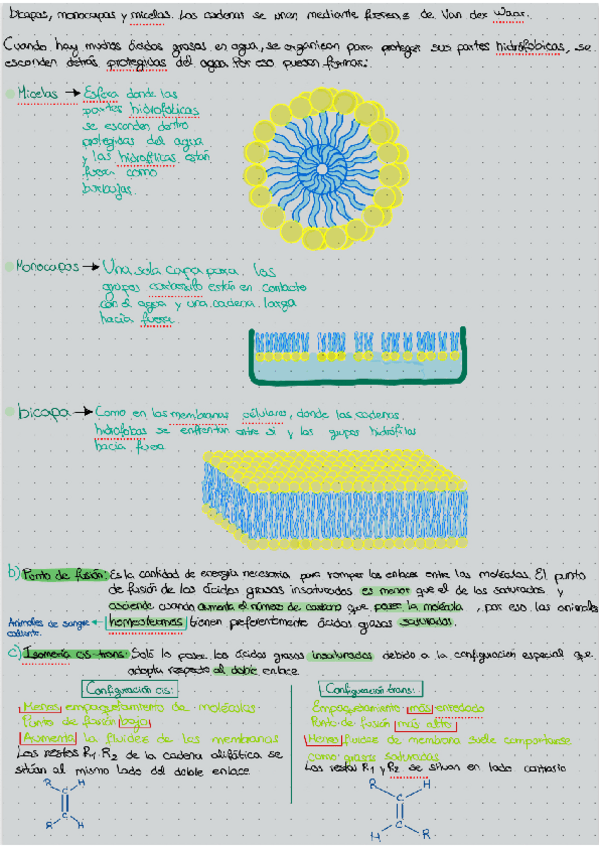 bicapas, monocapas y micelas. Las cadenas se unen mediante fuerzas de Van der Waar.
Cuando hay muchos ácidos grasos en agua, se organizan para proteger sus partes hidrofóbicas, se
esconden detrás protegidas del agua. Por eso pueden formar:
Micelas → Esfera donde las
partes hidrofóbicas
se esconden dentro
protegidas del agua
y las hidrofílicas están
fuera como
burbujas.
Monocapas → Una sola capa para las
grupos carboxilo están en contacto
con el agua y una cadena larga
hacia fuera
bicapa → Como en las membranas celulares, donde las cadenas
hidrófobas se enfrentan entre si y los grupos hidrófilos
hacia fuera
b) Punto de fusión: Es la cantidad de energía necesaria para romper los enlaces entre las moléculas. El punto
de fusión de los ácidos grasos insaturados es menor que el de los saturados y
asciende cuando aumenta el número de carbono que posee la molécula, por eso, los animales
Animales de sangre caliente. ← homeotermos tienen preferentemente ácidos grasos saturados.
c) Isomería cis-trans: Solo lo posee los ácidos grasos insaturados debido a la configuración especial que
adopta respecto al doble enlace.
Configuración cis:
Menos empaquetamiento de moléculas
Punto de fusión bajo
Aumenta la fluidez de las membranas
Los restos R1 R2 de la cadena alifática se
sitúan al mismo lado del doble enlace
R H
C
C
R H
Configuración trans:
Empaquetamiento más
Punto de fusión más alto
Menos fluidez de membrana suele comportarse
como grasas saturadas
Los restos R1 y R2 se situan en lado contrario
R H
C
C
H R